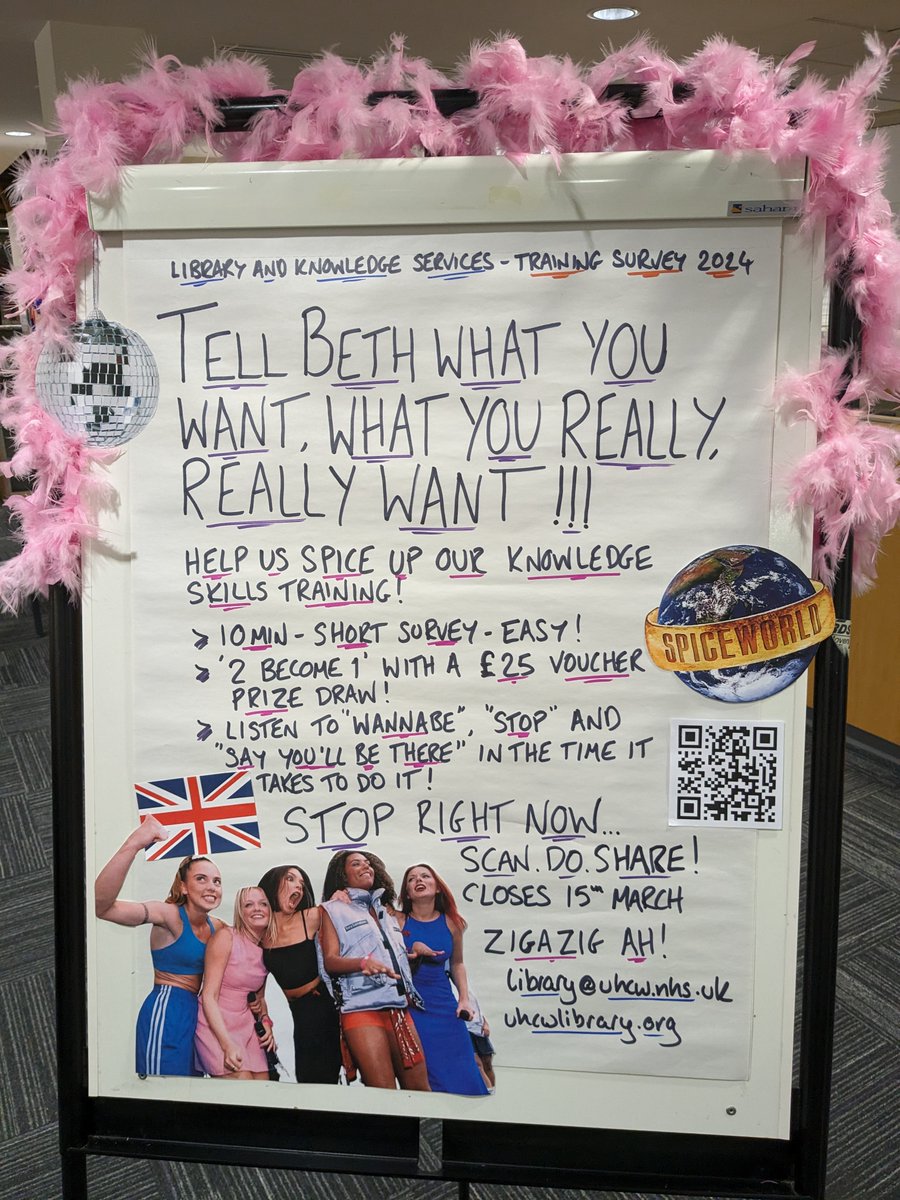 sahara
LIBRARY AND KNOWLEDGE SERVICES - TRAINING SURVEY 2024
TELL BETH WHAT YOU
WANT, WHAT YOU REALLY,
REALLY WANT !!!
HELP US SPICE UP OUR KNOWLEDGE
SKILLS TRAINING!
> 10 MIN - SHORT SURVEY - EASY!
> '2 BECOME 1' WITH A £25 VOUCHER
PRIZE DRAW!
> LISTEN TO "WANNABE", "STOP" AND
"SAY YOU'LL BE THERE" IN THE TIME IT
TAKES TO DO IT!
SPICEWORLD
STOP RIGHT NOW...
SCAN. DO. SHARE!
CLOSES 15TH MARCH
ZIGAZIG AH!
library@uhcw.nhs.uk
uhcwlibrary.org